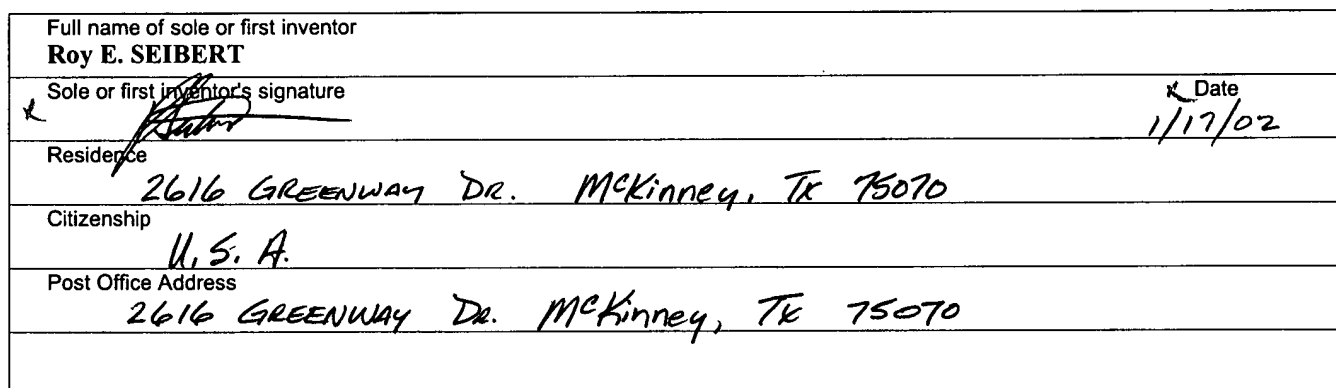 Full name of sole or first inventor
Roy E. SEIBERT
Sole or first inventor's signature
x Date
1/17/02
Residence
2616 GREENWAY DR. McKinney, TX 75070
Citizenship
U.S.A.
Post Office Address
2616 GREENWAY DR. McKinney, TX 75070